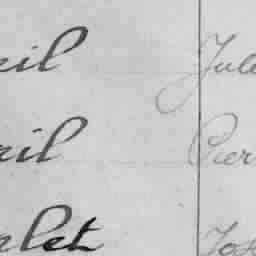 ril Jule
ril Pier
rlet Jos